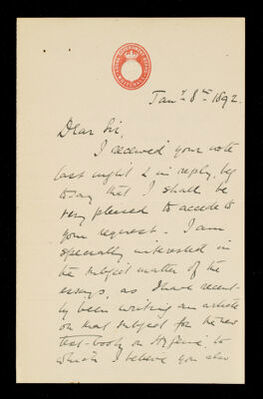 Jany. 8th 1892.
Dear Sir,
I received your note
last night & in reply, beg
to say that I shall be
very pleased to accede to
your request. I am
specially interested in
the subject matter of the
essays, as I have recent-
ly been writing an article
on that subject for the new
text-book on Hygiene, to
which I believe you also